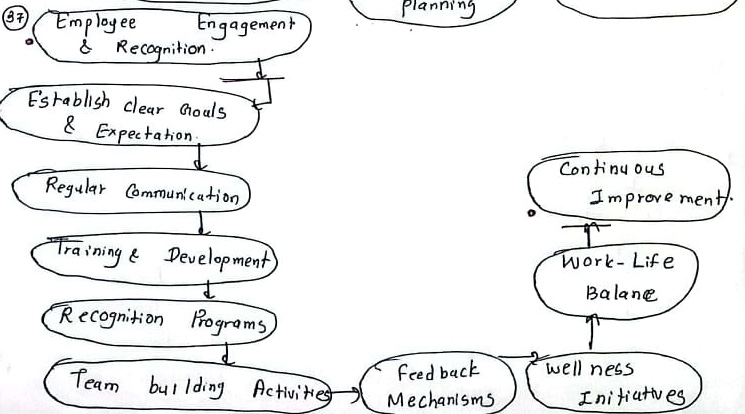 37
Employee Engagement
& Recognition.
Planning
Establish clear Goals
& Expectation.
Regular Communication
Training & Development
Recognition Programs
Team building Activities
Feedback
Mechanisms
Wellness
Initiatives
Work-Life
Balance
Continuous
Improvement.